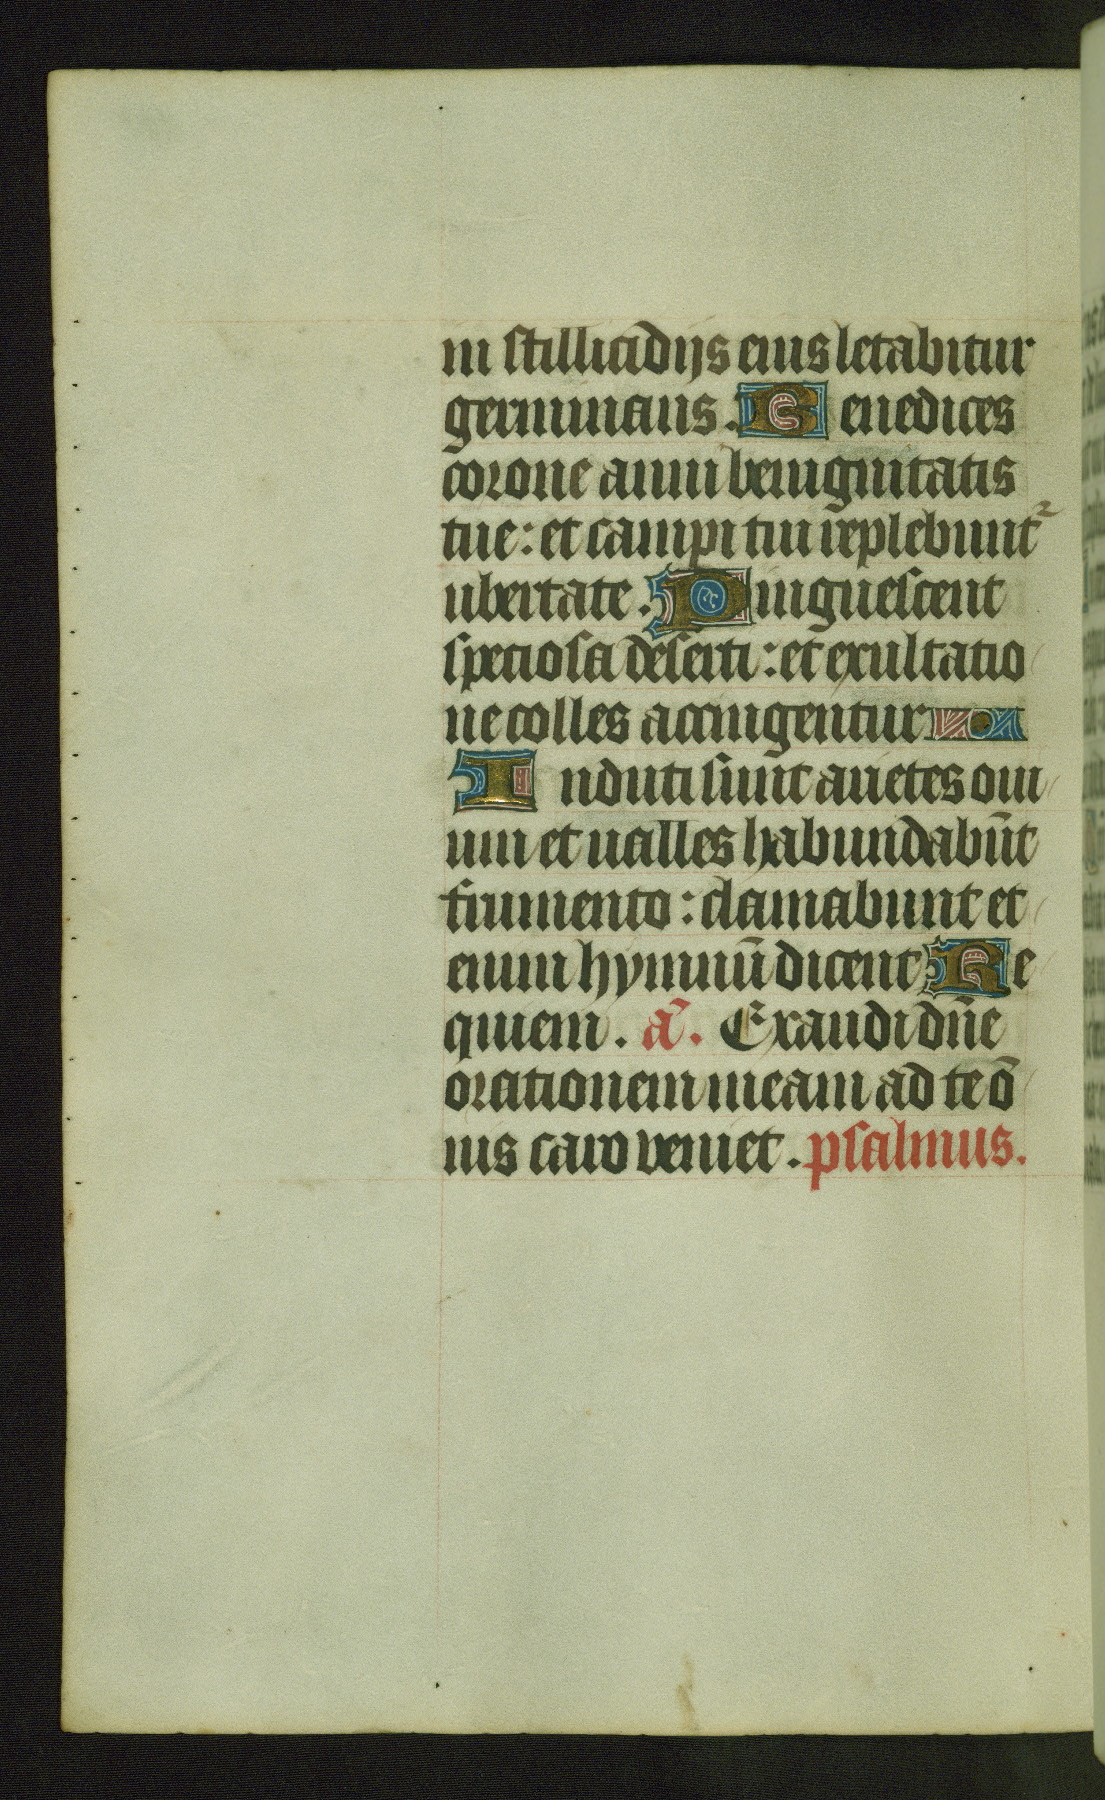 in stillicidijs eius letabitur
germinans. Benedices
corone anni benignitatis
tue: et campi tui replebunt᷑
ubertate. Pinguescent
speciosa deserti: et exultatio
ne colles accingentur
Induti sunt arietes oui
um et ualles habundabūt
frumento: clamabunt et
enim hymnū dicent Re
quiem. a͂. Exaudi dn̄e
orationem meam ad te ō
nis caro veniet. psalmus.